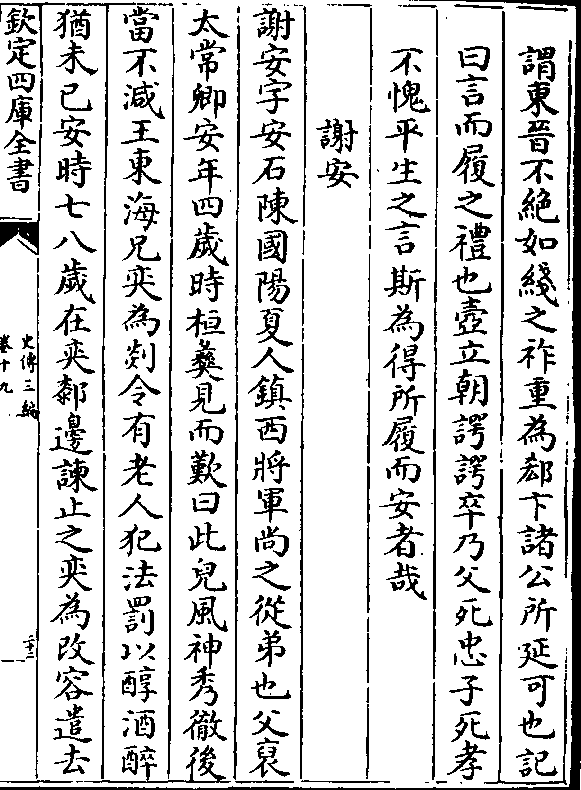 謂東晉不絶如綫之祚重為郄卞諸公所延可也記
曰言而履之禮也壼立朝諤諤卒乃父死忠子死孝
不愧平生之言斯為得所履而安者哉
謝安
謝安字安石陳國陽夏人鎮西將軍尚之從弟也父裒
太常卿安年四歲時桓彝見而歎曰此兒風神秀徹後
當不減王東海兄奕為剡令有老人犯法罰以醇酒醉
猶未已安時七八歲在奕鄰邊諫止之奕為改容遣去
欽定四庫全書
史傳三編
卷十九
二十三